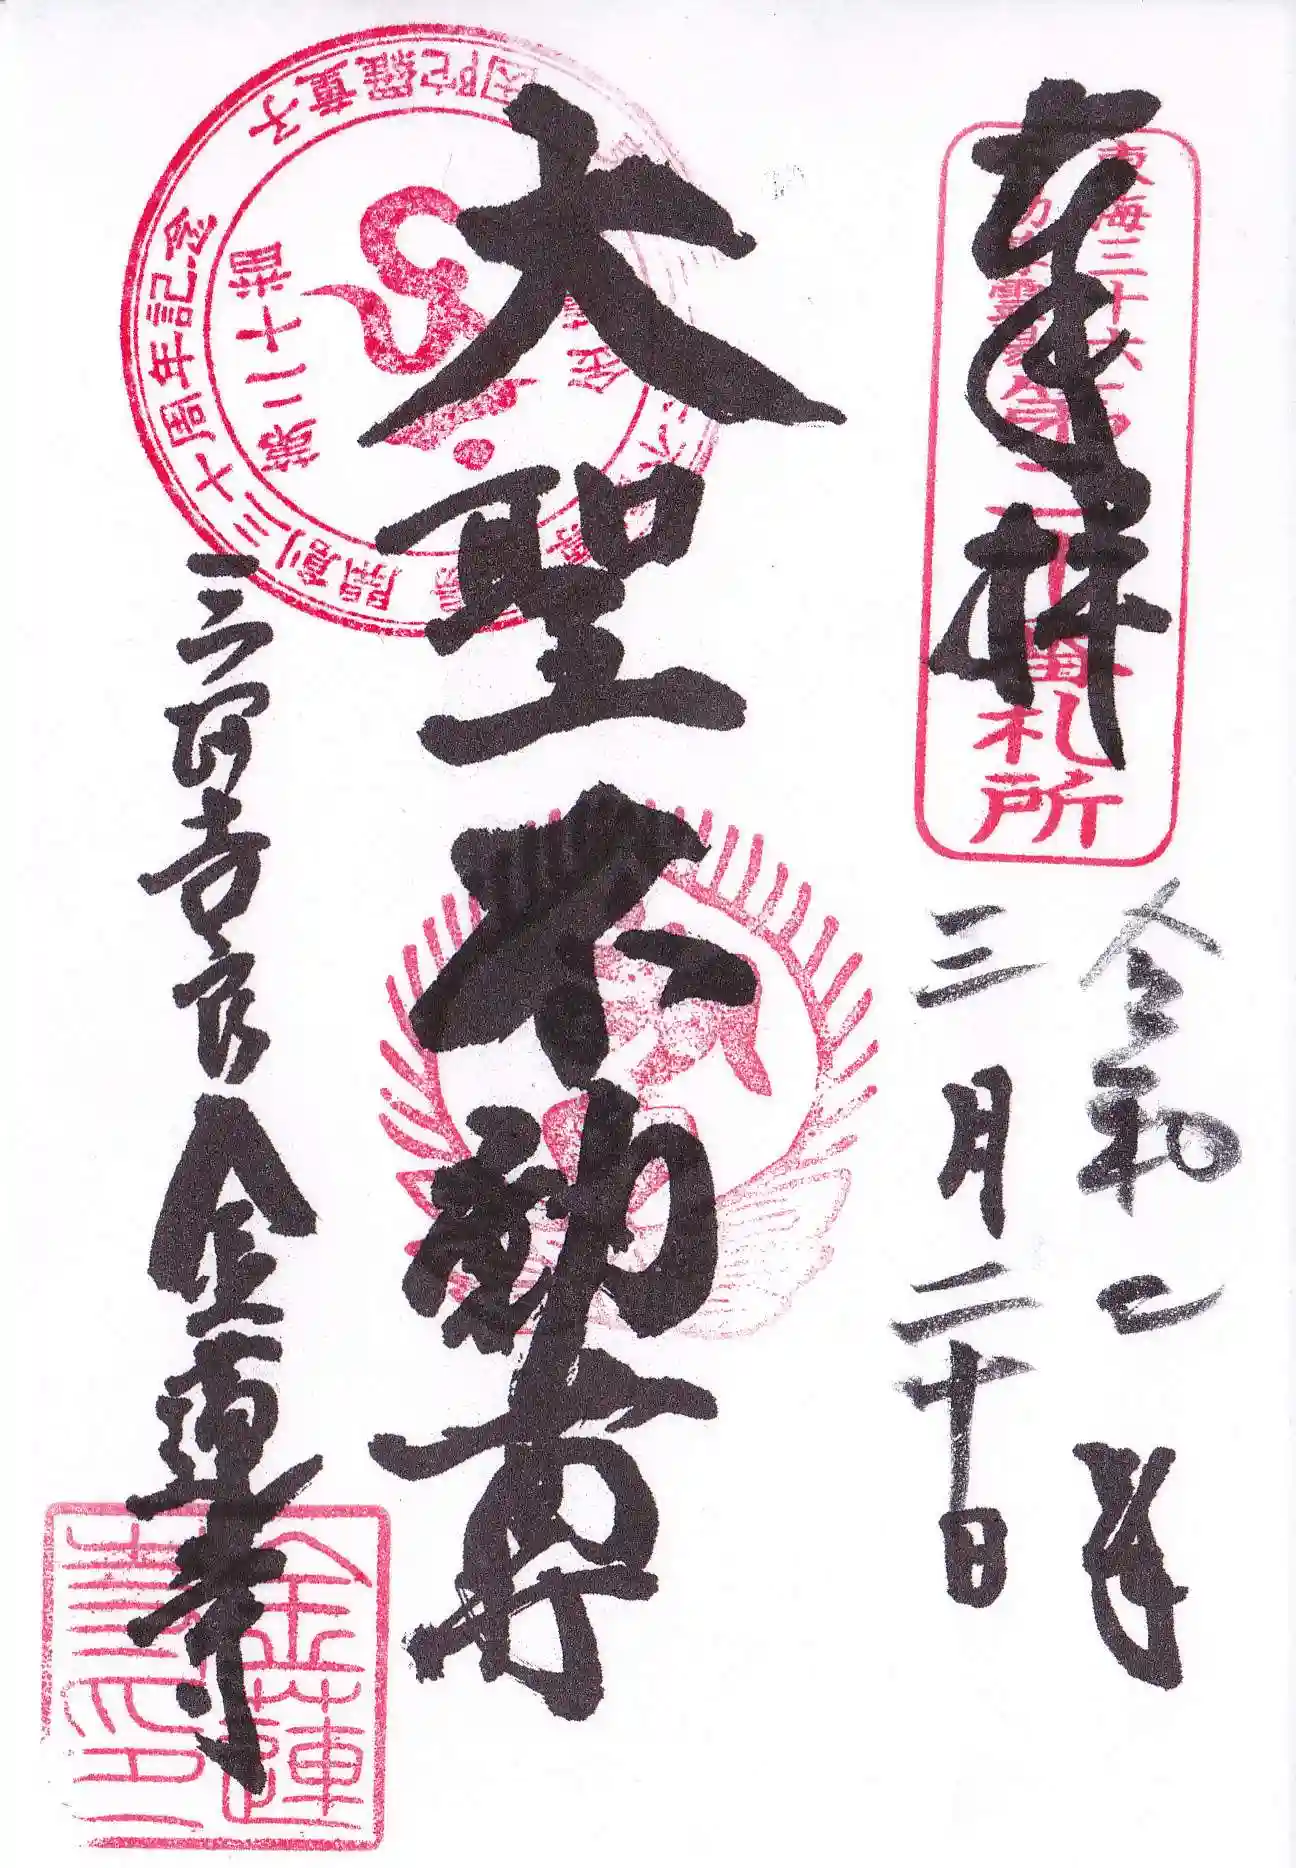 奉拝
東海三十六不動尊霊場
札所
令和二年
三月二十日
大聖不動尊
開創三十周年記念
羅童子
三河吉良
金蓮寺
金蓮
寺印